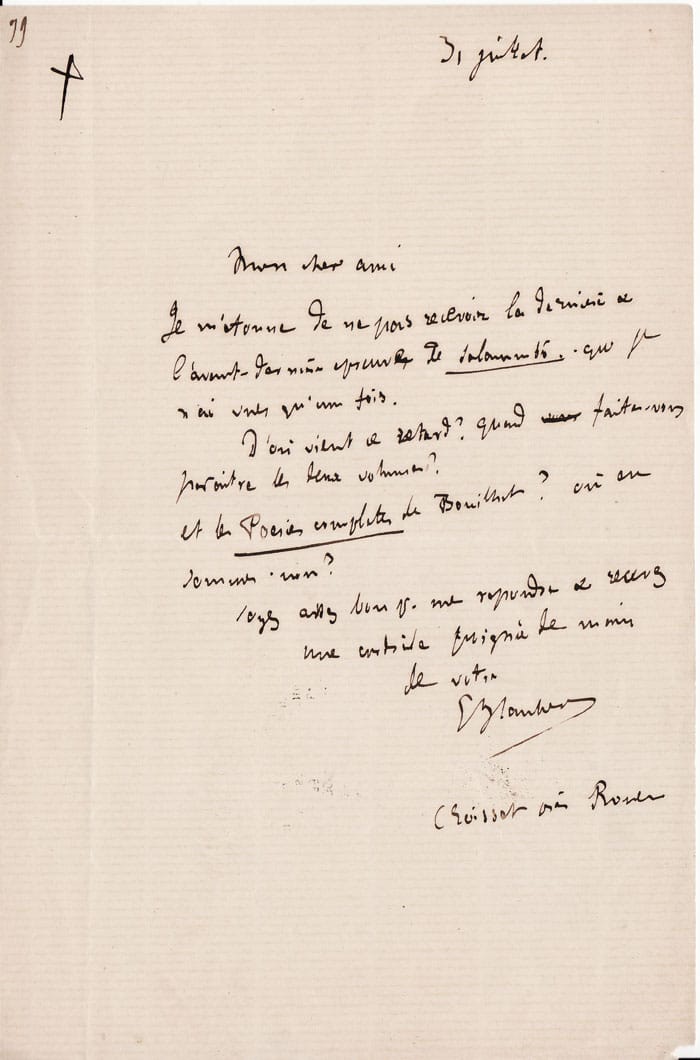 99
31 juillet.
Mon cher ami
Je m'étonne de ne pas recevoir la dernière &
l'avant-dernière épreuve de Salammbô. que je
n'ai vues qu'une fois.
D'où vient ce retard? quand faites-vous
paraître les deux volumes?
et les Poésies complètes de Bouilhet? où en
sommes-nous?
soyez assez bon p. me répondre & recevez
une cordiale poignée de main
de votre
G Flaubert
Croisset près Rouen